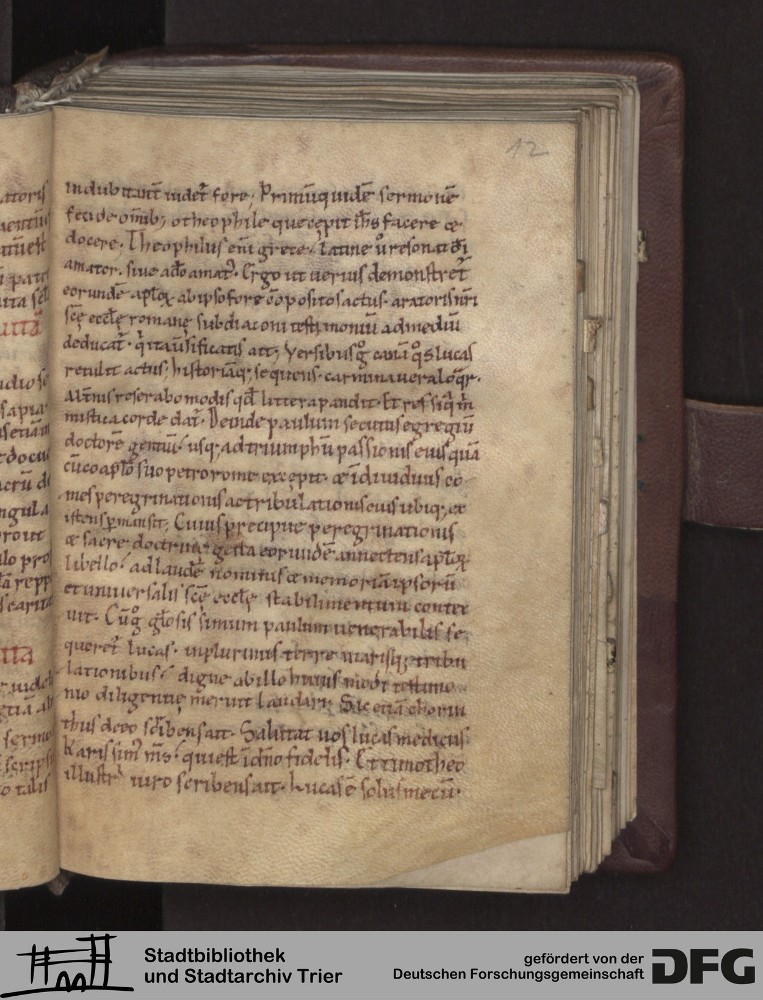 12
indubitant̄ uidet̄ fore; Primūquidē sermonē
feci de om̄ib; o theophile que cepit ih̄s facere &
docere. Theophilus eni grece. latine u̓ resonat d̄i
amator. siue ad̄o amat᷒. Ergo ut uerius demonstret̄
eorundē ap̄lox ab ipso fore opposito actus. aratoris nr̄i
sc̄ę eccl̄ę romanę subdiaconi testimoniū admediū
deducat̄. q̓ ita uersificatis ait; Versibus g̊ canā q̊s lucas
retulit actus. historiāq; sequens. carmina uera loq̄r.
Alt̄nis reserabo modis qd̄ littera pandit. Et res siq̄ m̄
mistica corde dat̄. Deinde paulum secutus egregiū
doctorē gentiū. usq; ad triumphū passionis eius quā
cū coap̄lo suo petro rome excepit. & īdiuiduus co
mes peregrinationis ac tribulationis eius ubiq; ex
istens p̄mansit; Cuius precipue peregrinationis
& sacre doctrinę gesta eorundē annectens ap̄lox
libello. ad laudē nominis & memoriā ipsorū
et uniuersalis sc̄ę eccl̄ę stabilimentum contex
uit. Cū g̊ gl̄osissimum paulum uenerabilis se
queret̄ lucas. in plurimis terre marisq; tribu
lationibus. digne ab illo huius modi testimo
nio diligentię meruit laudari. Sic etiā chorin
thus deeo scribens ait. Salutat uos lucas medicus
Karissim᷒ m̄s. qui est ī dn̄o fidelis. Et timotheo
illustri uiro scribens ait. Lucas ē solus mecū.
Stadtbibliothek
und Stadtarchiv Trier
gefördert von der
Deutschen Forschungsgemeinschaft
DFG